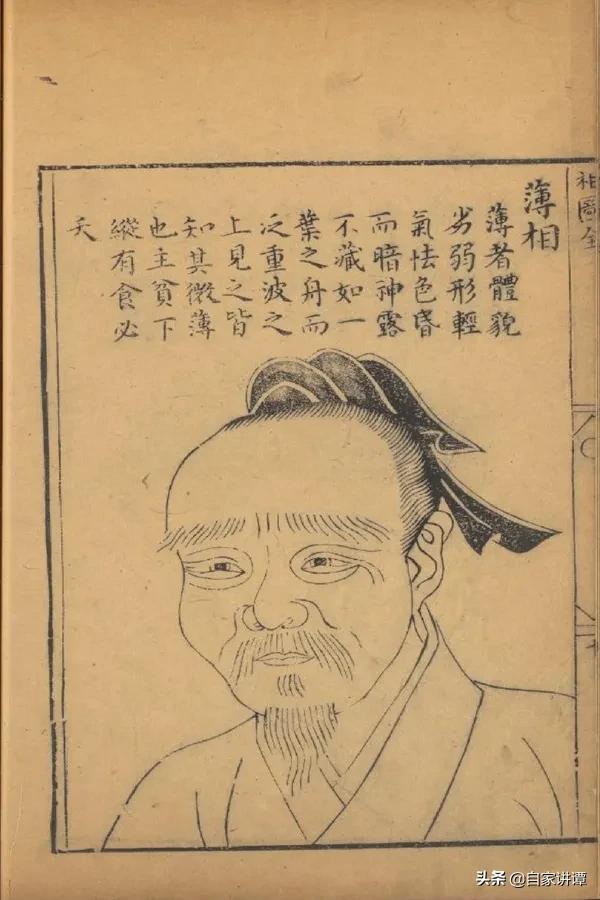 圖全
薄相
薄者體貌
劣弱形輕
氣怯色昏
而暗神露
不藏如一
葉之舟而
泛重波之
上見之皆
知其微薄
也主貧下
縱有食必
夭
头条 @自家讲谭